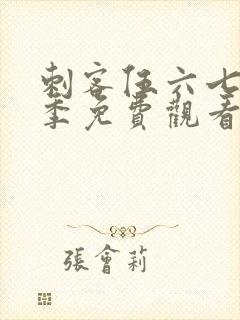 刺客伍六七
季免費觀看
張會莉